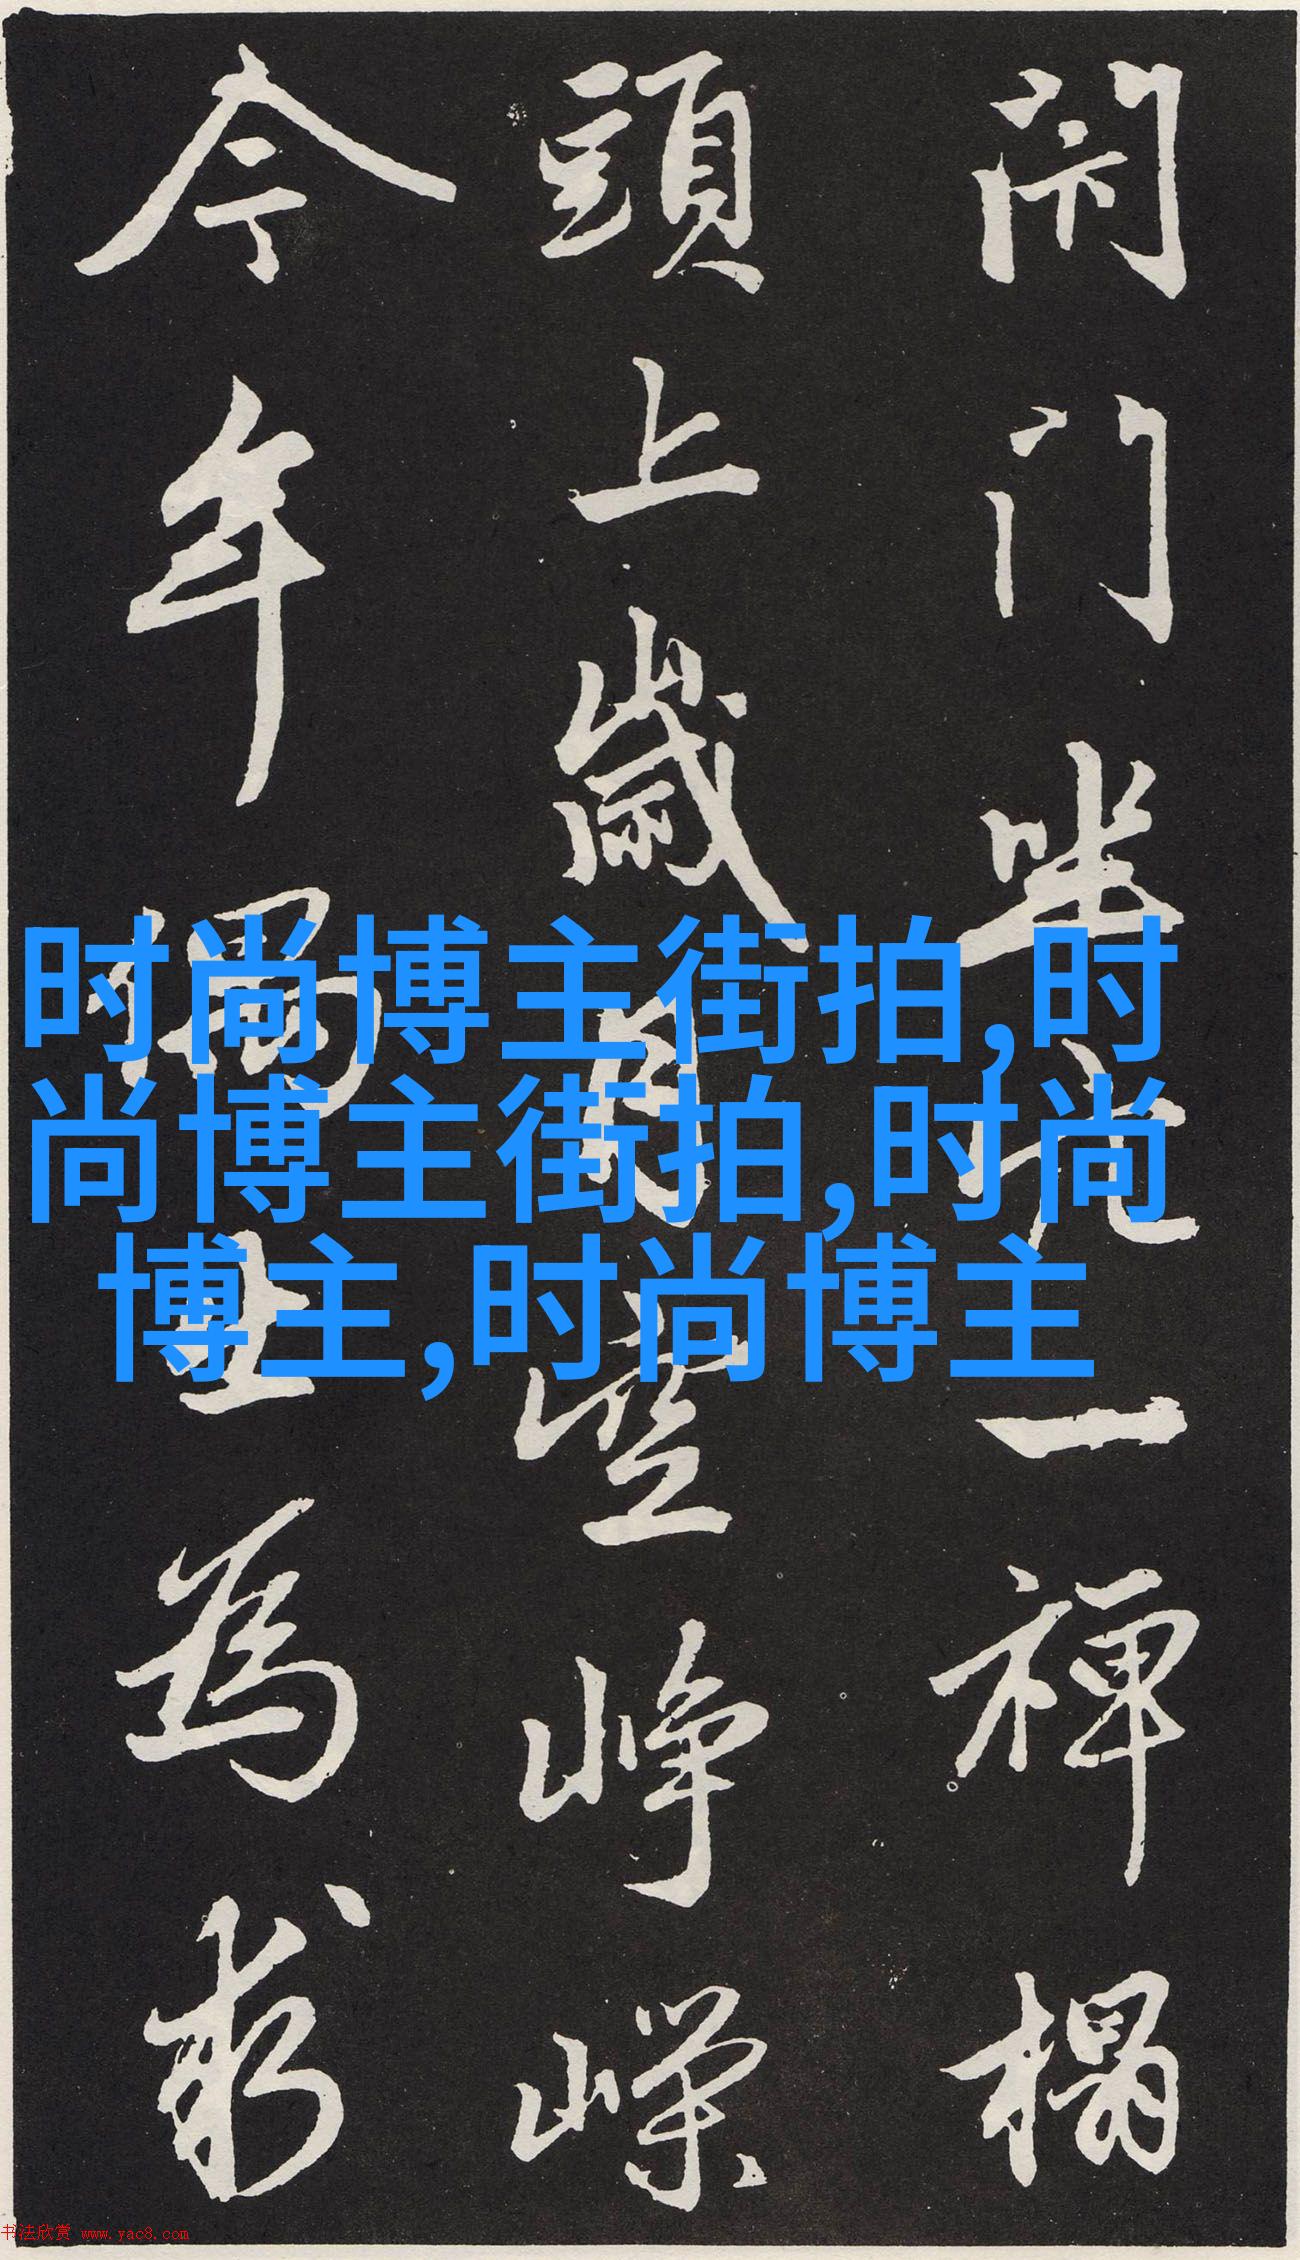 閉門坐穴一禪榻
頭上歲月空崢嶸
今年偶出為求
时尚博主街拍,时
尚博主街拍,时尚
博主,时尚博主
书法欣赏 www.yac8.com